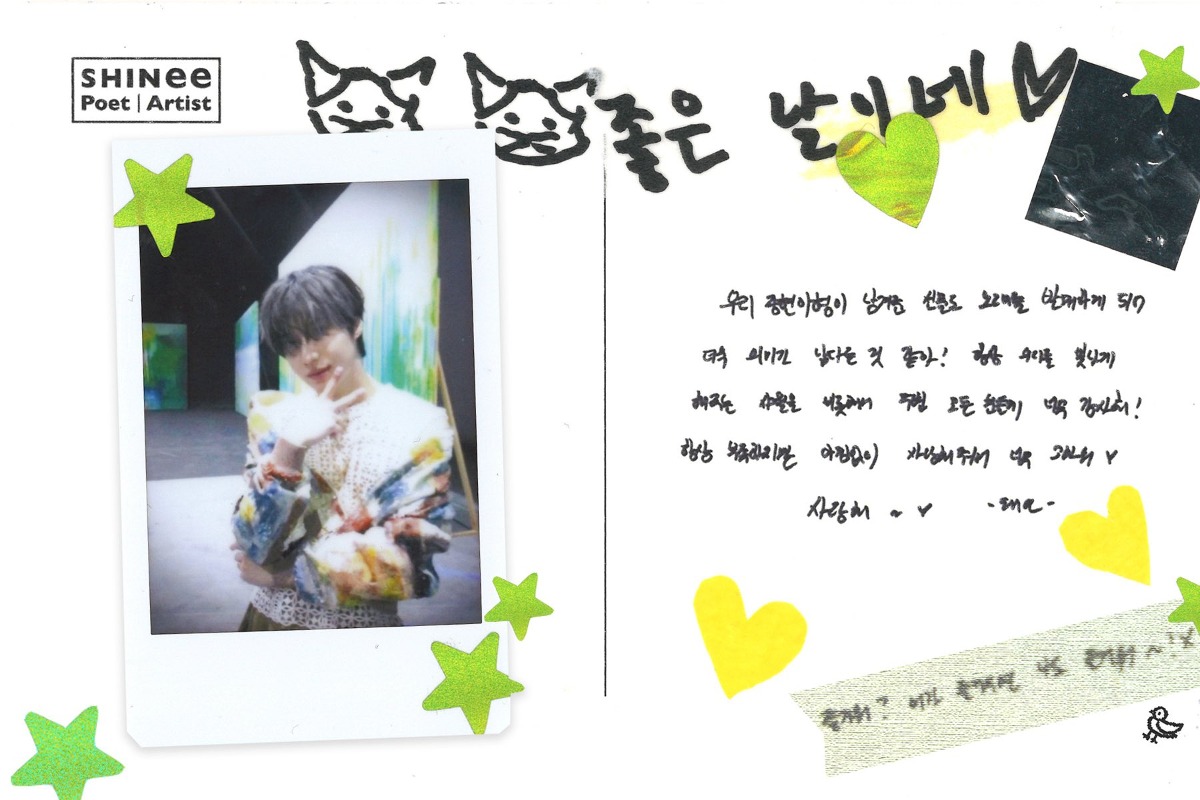 SHINee
Poet | Artist
좋은 날이네
우리 종현이형이 남겨준 선물로 오래만을 발매하게 되어
더욱 의미가 남다른 것 같아! 항상 우리를 빛나게
해주는 샤월을 비롯해서 주변 모든 분들께 너무 감사해!
항상 부족하지만 아낌없이 사랑해주셔서 너무 고마워
사랑해 ~ -태민-
즐거워? 너가 즐거우면 나도 즐거워~!